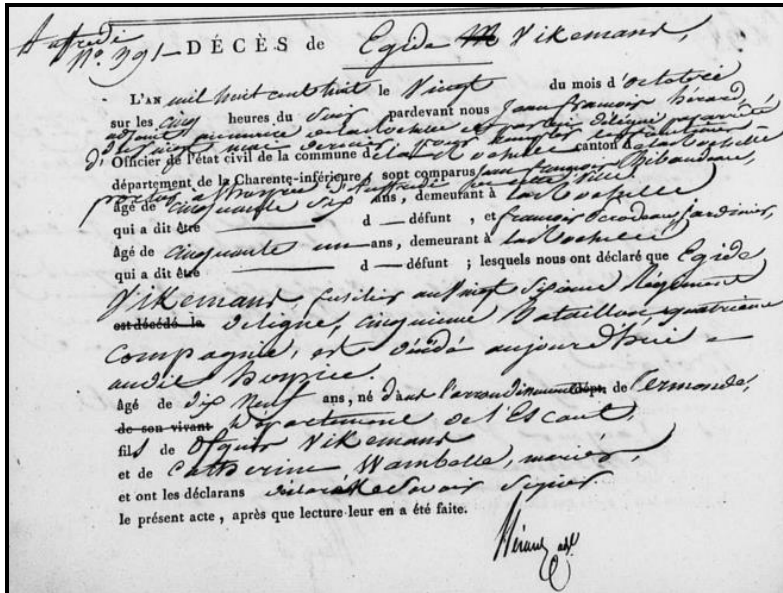 Auffredi
N.º 391 — DÉCÈS de Egide Vikemans,
L'AN mil huit cent huit le Vingt du mois d'octobre
sur les cinq heures du Soir pardevant nous Jean françois hérard,
adjoint au maire de la Rochelle et par lui délégué par arrêté
du mai dernier, pour remplir les fonctions
d' Officier de l'état civil de la commune de la Rochelle canton de la Rochelle
département de la Charente-inférieure, sont comparus Jean françois Ribaudeau,
portier a l'hospice d'Auffredi de cette Ville,
âgé de cinquante Six ans, demeurant à la Rochelle
qui a dit être —— d — défunt, et françois jardinier,
âgé de cinquante un ans, demeurant à la Rochelle
qui a dit être —— d — défunt ; lesquels nous ont déclaré que Egide
Vikemans, fusilier au Vingt Sixieme Régiment
est décédé le de ligne, cinquieme Bataillon, quatrieme
Compagnie, est décédé aujourd'hui
audit hospice.
âgé de dix Neuf ans, né dans l'arrondissement dépt. de Termonde,
de son vivant Département de l'Escaut
fils de Vikemans
et de Catherine Wambelle, mariés,
et ont les déclarans déclaré ne Savoir Signer
le présent acte, après que lecture leur en a été faite.
hérard adj.